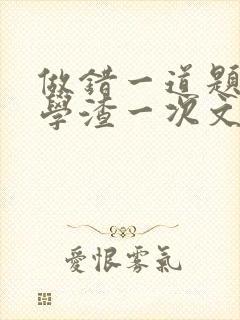 做錯一道題
學渣一次文
愛恨雾氣